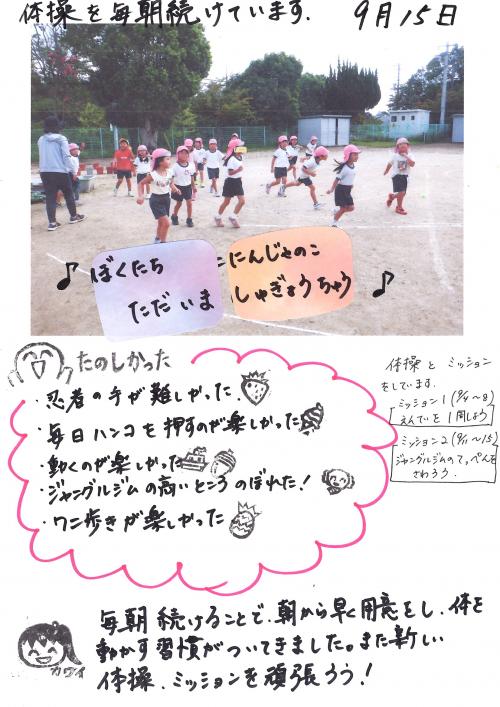 体操を毎朝続けています. 9月15日
ぼくたち
ただいま
にんじゃのこ
しゅぎょうちゅう
たのしかった
・忍者の手が難しかった
・毎日ハンコを押すのが楽しかった
・動くのが楽しかった
・ジャングルジムの高いところのぼれた!
・ワニ歩きが楽しかった
体操とミッション
をしています.
ミッション1(9/1〜8)
えんていを1周しよう
ミッション2(9/11〜15)
ジャングルジムのてっぺんを
さわろう.
毎朝続けることで、朝から早く用意をし、体を
動かす習慣がついてきました。また新しい
体操、ミッションを頑張ろう!
カワイ